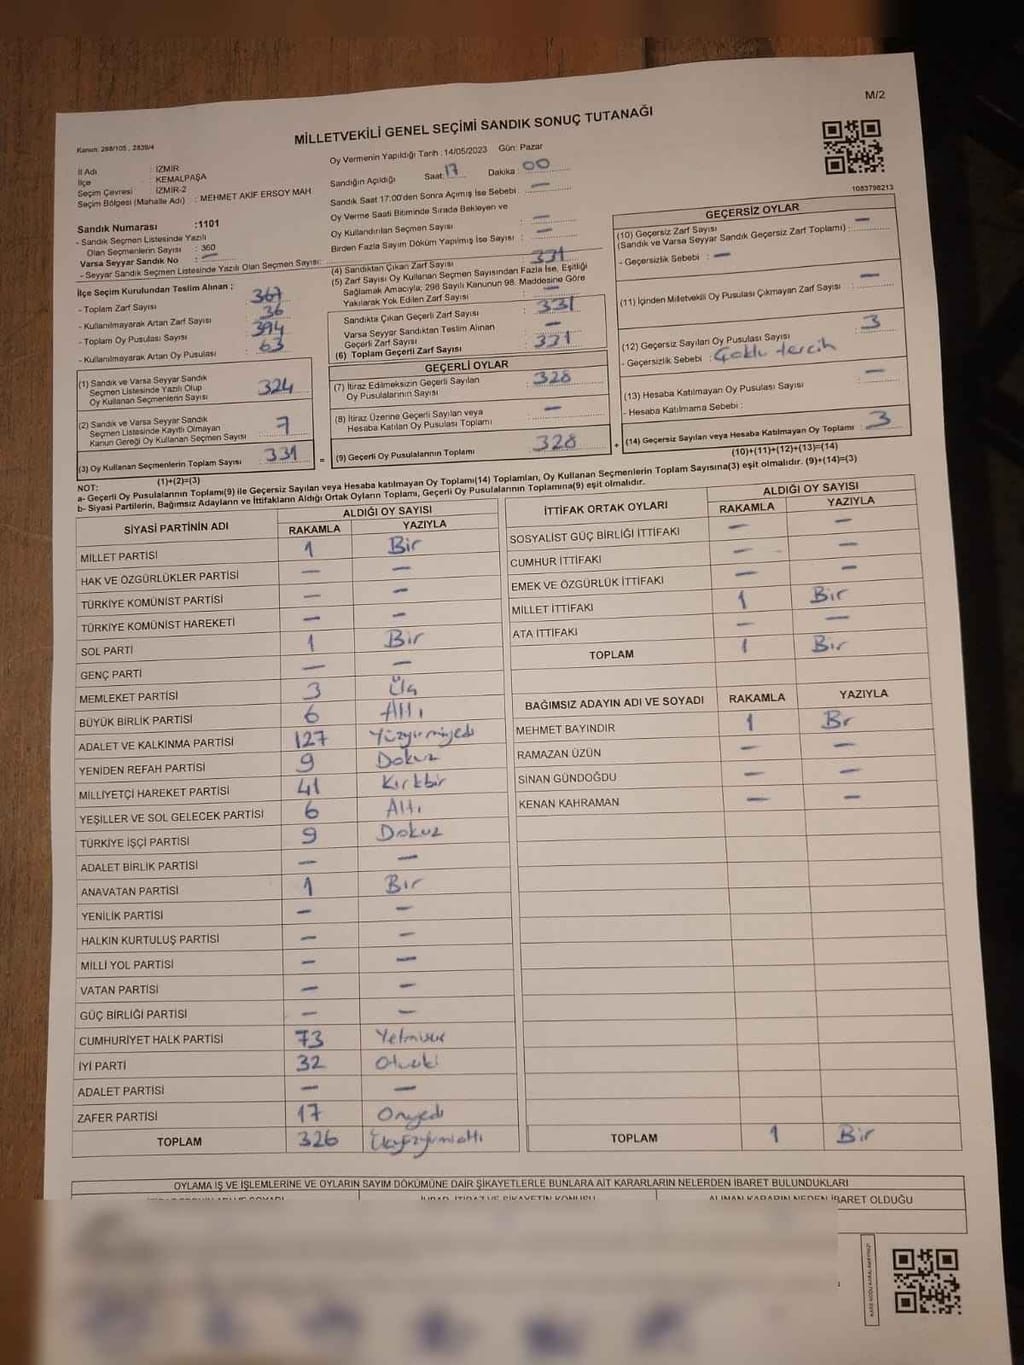 M/2
MİLLETVEKİLİ GENEL SEÇİMİ SANDIK SONUÇ TUTANAĞI
Kanun: 298/105 , 2839/4
İl Adı : İZMİR
İlçe : KEMALPAŞA
Seçim Çevresi : İZMİR-2
Seçim Bölgesi (Mahalle Adı) : MEHMET AKİF ERSOY MAH
Sandık Numarası :1101
- Sandık Seçmen Listesinde Yazılı
Olan Seçmenlerin Sayısı : 360
Varsa Seyyar Sandık No : —
- Seyyar Sandık Seçmen Listesinde Yazılı Olan Seçmen Sayısı:
Oy Vermenin Yapıldığı Tarih : 14/05/2023 Gün: Pazar
Sandığın Açıldığı Saat: 17 Dakika : 00
Sandık Saat 17:00'den Sonra Açımış İse Sebebi : —
Oy Verme Saati Bitiminde Sırada Bekleyen ve
Oy Kullandırılan Seçmen Sayısı : —
Birden Fazla Sayım Döküm Yapılmış İse Sayısı : —
1083798213
İlçe Seçim Kurulundan Teslim Alınan ;
- Toplam Zarf Sayısı : 367
- Kullanılmayarak Artan Zarf Sayısı : 36
- Toplam Oy Pusulası : 394
- Kullanılmayarak Artan Oy Pusulası : 63
(1) Sandık ve Varsa Seyyar Sandık
Seçmen Listesinde Yazılı Olup
Oy Kullanan Seçmenlerin Sayısı : 324
(2) Sandık ve Varsa Seyyar Sandık
Seçmen Listesinde Kayıtlı Olmayan
Kanun Gereği Oy Kullanan Seçmen Sayısı : 7
(3) Oy Kullanan Seçmenlerin Toplam Sayısı : 331
(1)+(2)=(3)
(4) Sandıktan Çıkan Zarf Sayısı : 331
(5) Zarf Sayısı Oy Kullanan Seçmen Sayısından Fazla İse, Eşitliği
Sağlamak Amacıyla; 298 Sayılı Kanunun 98. Maddesine Göre
Yakılarak Yok Edilen Zarf Sayısı : —
Sandıkta Çıkan Geçerli Zarf Sayısı : 331
Varsa Seyyar Sandıktan Teslim Alınan
Geçerli Zarf Sayısı : —
(6) Toplam Geçerli Zarf Sayısı : 331
GEÇERLİ OYLAR
(7) İtiraz Edilmeksizin Geçerli Sayılan
Oy Pusulalarının Sayısı : 328
(8) İtiraz Üzerine Geçerli Sayılan veya
Hesaba Katılan Oy Pusulası Toplamı : —
= (9) Geçerli Oy Pusulalarının Toplamı : 328
GEÇERSİZ OYLAR
(10) Geçersiz Zarf Sayısı
(Sandık ve Varsa Seyyar Sandık Geçersiz Zarf Toplamı) : —
- Geçersizlik Sebebi : —
(11) İçinden Milletvekili Oy Pusulası Çıkmayan Zarf Sayısı : —
(12) Geçersiz Sayılan Oy Pusulası Sayısı : 3
- Geçersizlik Sebebi : Çoklu tercih
(13) Hesaba Katılmayan Oy Pusulası Sayısı —
- Hesaba Katılmama Sebebi :
+ (14) Geçersiz Sayılan veya Hesaba Katılmayan Oy Toplamı : 3
(10)+(11)+(12)+(13)=(14)
NOT:
a- Geçerli Oy Pusulalarının Toplamı(9) ile Geçersiz Sayılan veya Hesaba katılmayan Oy Toplamı(14) Toplamları, Oy Kullanan Seçmenlerin Toplam Sayısına(3) eşit olmalıdır. (9)+(14)=(3)
b- Siyasi Partilerin, Bağımsız Adayların ve İttifakların Aldığı Ortak Oyların Toplamı, Geçerli Oy Pusulalarının Toplamına(9) eşit olmalıdır.
SİYASİ PARTİNİN ADI ALDIĞI OY SAYISI
RAKAMLA YAZIYLA
MİLLET PARTİSİ 1 Bir
HAK VE ÖZGÜRLÜKLER PARTİSİ — —
TÜRKİYE KOMÜNİST PARTİSİ — —
TÜRKİYE KOMÜNİST HAREKETİ — —
SOL PARTİ 1 Bir
GENÇ PARTİ — —
MEMLEKET PARTİSİ 3 Üç
BÜYÜK BİRLİK PARTİSİ 6 Altı
ADALET VE KALKINMA PARTİSİ 127 Yüzyirmiyedi
YENİDEN REFAH PARTİSİ 9 Dokuz
MİLLİYETÇİ HAREKET PARTİSİ 41 Kırkbir
YEŞİLLER VE SOL GELECEK PARTİSİ 6 Altı
TÜRKİYE İŞÇİ PARTİSİ 9 Dokuz
ADALET BİRLİK PARTİSİ — —
ANAVATAN PARTİSİ 1 Bir
YENİLİK PARTİSİ — —
HALKIN KURTULUŞ PARTİSİ — —
MİLLİ YOL PARTİSİ — —
VATAN PARTİSİ — —
GÜÇ BİRLİĞİ PARTİSİ — —
CUMHURİYET HALK PARTİSİ 73 Yetmişüç
İYİ PARTİ 32 Otuziki
ADALET PARTİSİ — —
ZAFER PARTİSİ 17 Onyedi
TOPLAM 326 Üçyüzyirmialtı
İTTİFAK ORTAK OYLARI ALDIĞI OY SAYISI
RAKAMLA YAZIYLA
SOSYALİST GÜÇ BİRLİĞİ İTTİFAKI — —
CUMHUR İTTİFAKI — —
EMEK VE ÖZGÜRLÜK İTTİFAKI — —
MİLLET İTTİFAKI 1 Bir
ATA İTTİFAKI — —
TOPLAM 1 Bir
BAĞIMSIZ ADAYIN ADI VE SOYADI RAKAMLA YAZIYLA
MEHMET BAYINDIR 1 Br
RAMAZAN ÜZÜN — —
SİNAN GÜNDOĞDU — —
KENAN KAHRAMAN — —
TOPLAM 1 Bir
OYLAMA İŞ VE İŞLEMLERİNE VE OYLARIN SAYIM DÖKÜMÜNE DAİR ŞİKAYETLERLE BUNLARA AİT KARARLARIN NELERDEN İBARET BULUNDUKLARI
ALINAN KARARIN NEDEN İBARET OLDUĞU